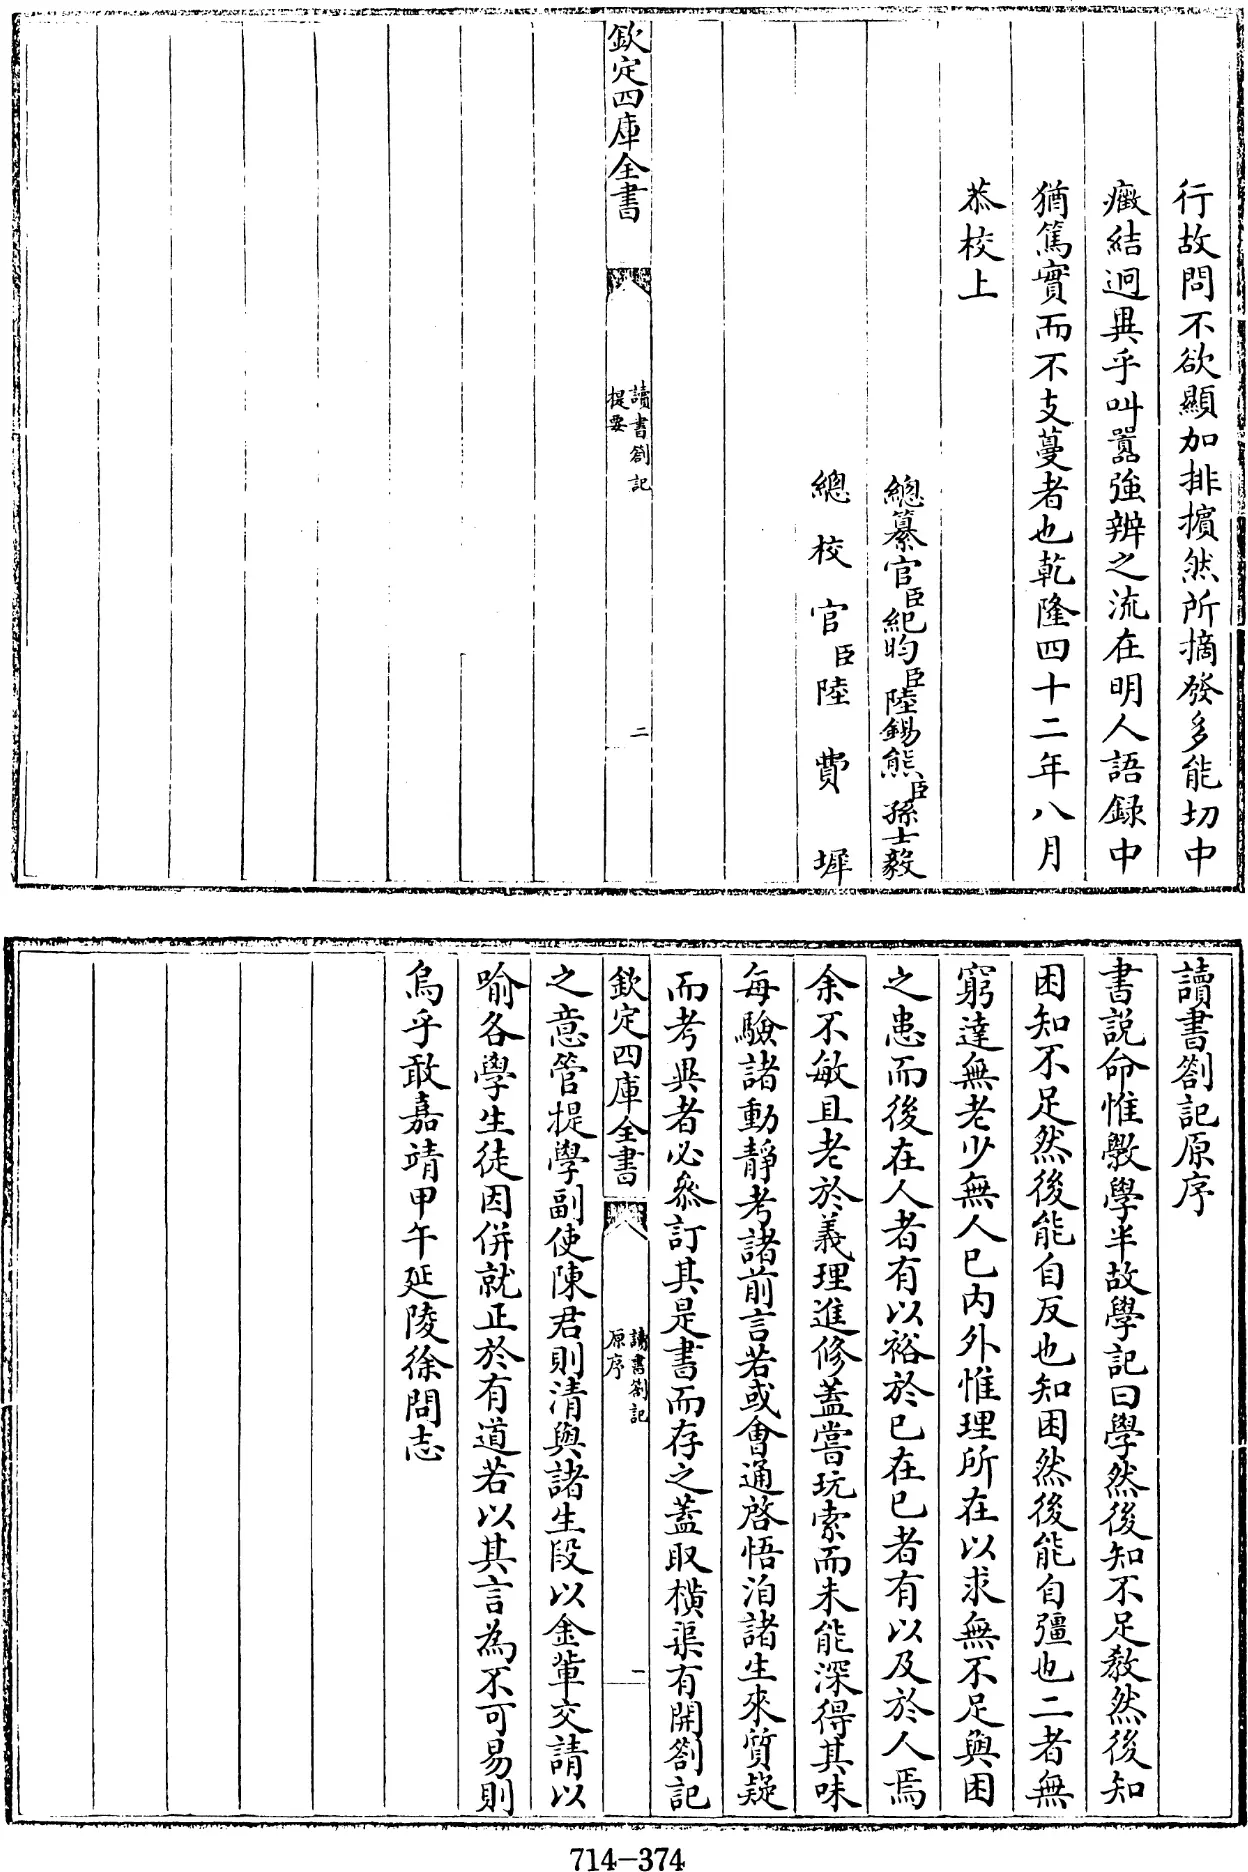 行故問不欲顯加排擯然所摘發多能切中
癥結迥異乎叫囂強辨之流在明人語録中
猶篤實而不支蔓者也乾隆四十二年八月
恭校上
總纂官臣紀昀臣陸錫熊臣孫士毅
總校官臣陸費墀
欽定四庫全書
讀書劄記
提要
二
讀書劄記原序
書説命惟斆學半故學記曰學然後知不足教然後知
困知不足然後能自反也知困然後能自彊也二者無
窮達無老少無人已内外惟理所在以求無不足與困
之患而後在人者有以裕於已在已者有以及於人焉
余不敏且老於義理進修蓋嘗玩索而未能深得其味
每驗諸動靜考諸前言若或會通啓悟洎諸生來質疑
而考異者必叅訂其是書而存之蓋取横渠有開劄記
欽定四庫全書
讀書劄記
原序
一
之意管提學副使陳君則清與諸生段以金軰交請以
喻各學生徒因併就正於有道若以其言為不可易則
烏乎敢嘉靖甲午延陵徐問志
714-374